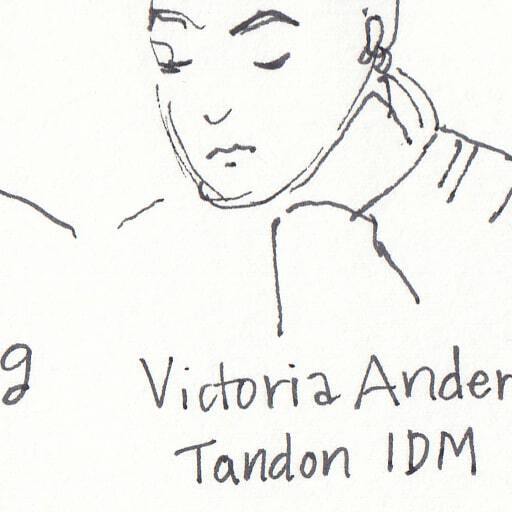 g Victoria Ander
Tandon IDM